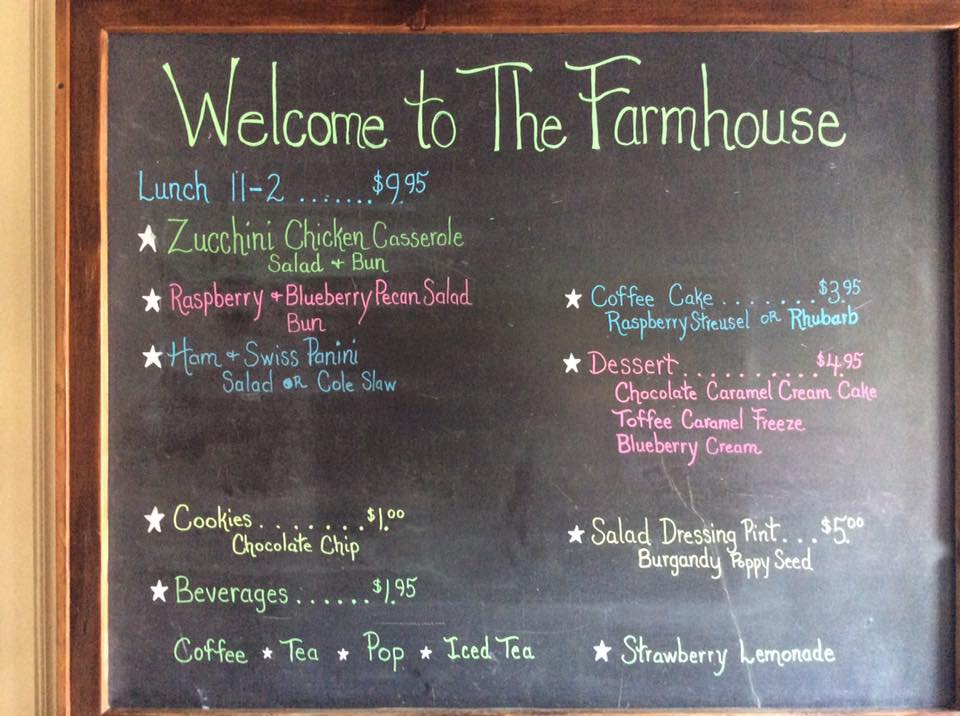 Welcome to The Farmhouse
Lunch 11-2 ....... $9.95
★ Zucchini Chicken Casserole
Salad + Bun
★ Raspberry + Blueberry Pecan Salad
Bun
★ Ham + Swiss Panini
Salad OR Cole Slaw
★ Coffee Cake ....... $3.95
Raspberry Streusel OR Rhubarb
★ Dessert .......... $4.95
Chocolate Caramel Cream Cake
Toffee Caramel Freeze
Blueberry Cream
★ Cookies ....... $1.00
Chocolate Chip
★ Beverages ...... $1.95
Coffee ★ Tea ★ Pop ★ Iced Tea
★ Salad Dressing Pint ... $5.00
Burgandy Poppy Seed
★ Strawberry Lemonade